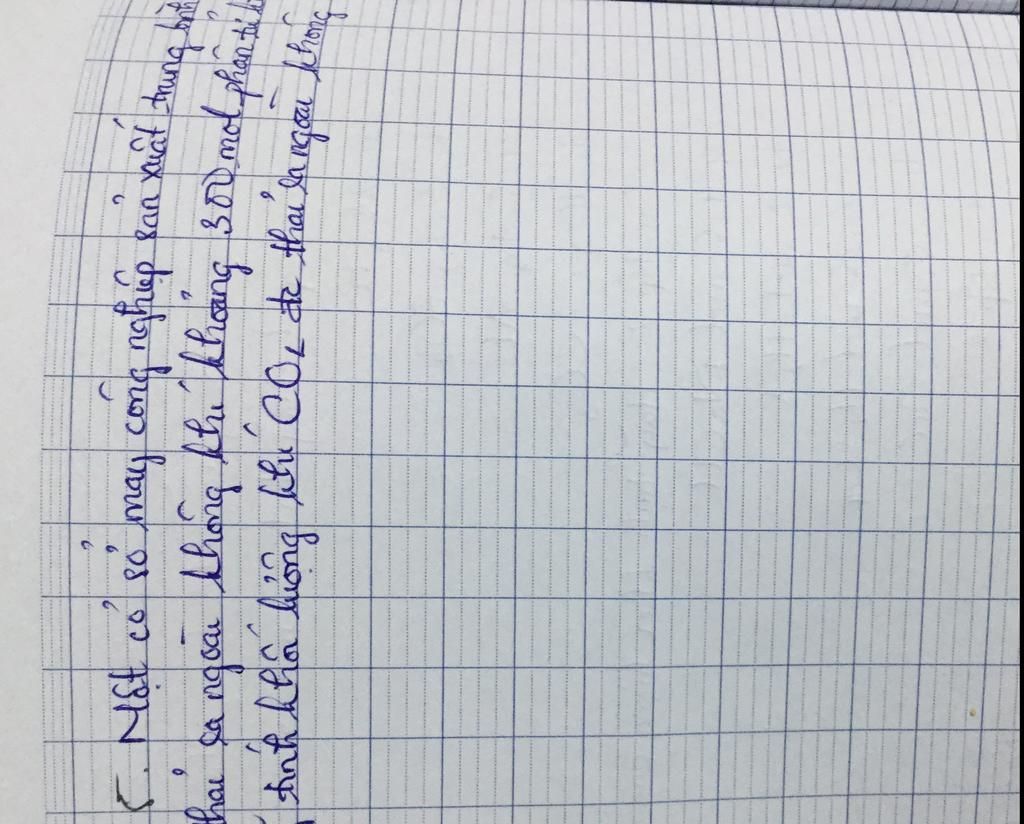 5. Một cơ sở máy công nghiệp sản xuất trung bình
thải ra ngoài không khí khoảng 300 mol phân tử
tính khối lượng khí CO2 đc thải ra ngoài không